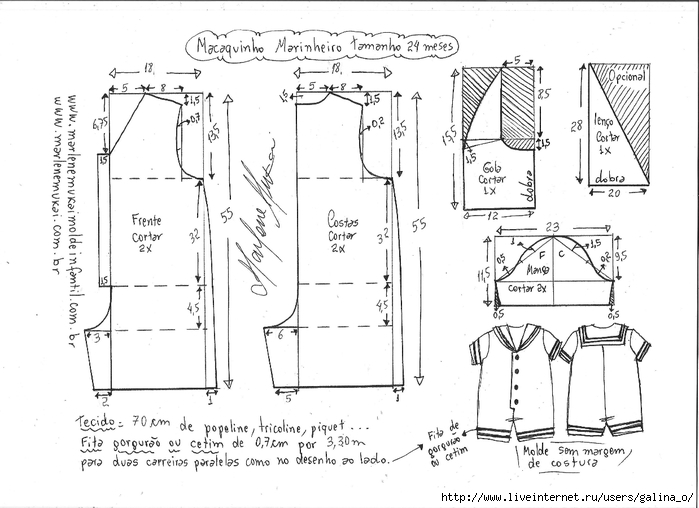 Macaquinho Marinheiro tamanho 24 meses
www.marlenemukai.com.br
www.marlenemukaimoldeinfantil.com.br
18
5
8
1,5
6,75
0,7
13,5
1,5
55
Frente
cortar
2x
32
1,5
4,5
3
2
1
Marlene Mukai
18
5
8
1,5
1,5
0,2
13,5
55
Costas
cortar
2x
32
4,5
6
5
1
5
8,5
15,5
1,5
1,5
Gola
cortar
1x
dobra
12
Opcional
28
lenço
cortar
1x
dobra
20
23
1
1,5
0,5
F
C
0,2
9,5
11,5
Manga
cortar 2x
0,5
0,5
Tecido = 70 cm de popeline, tricoline, piquet ...
Fita gorgurão ou cetim de 0,7 cm por 3,30 m
para duas carreiras paralelas como no desenho ao lado.
Fita de
gorgurão
ou cetim
Molde sem margem
de costura
http://www.liveinternet.ru/users/galina_o/